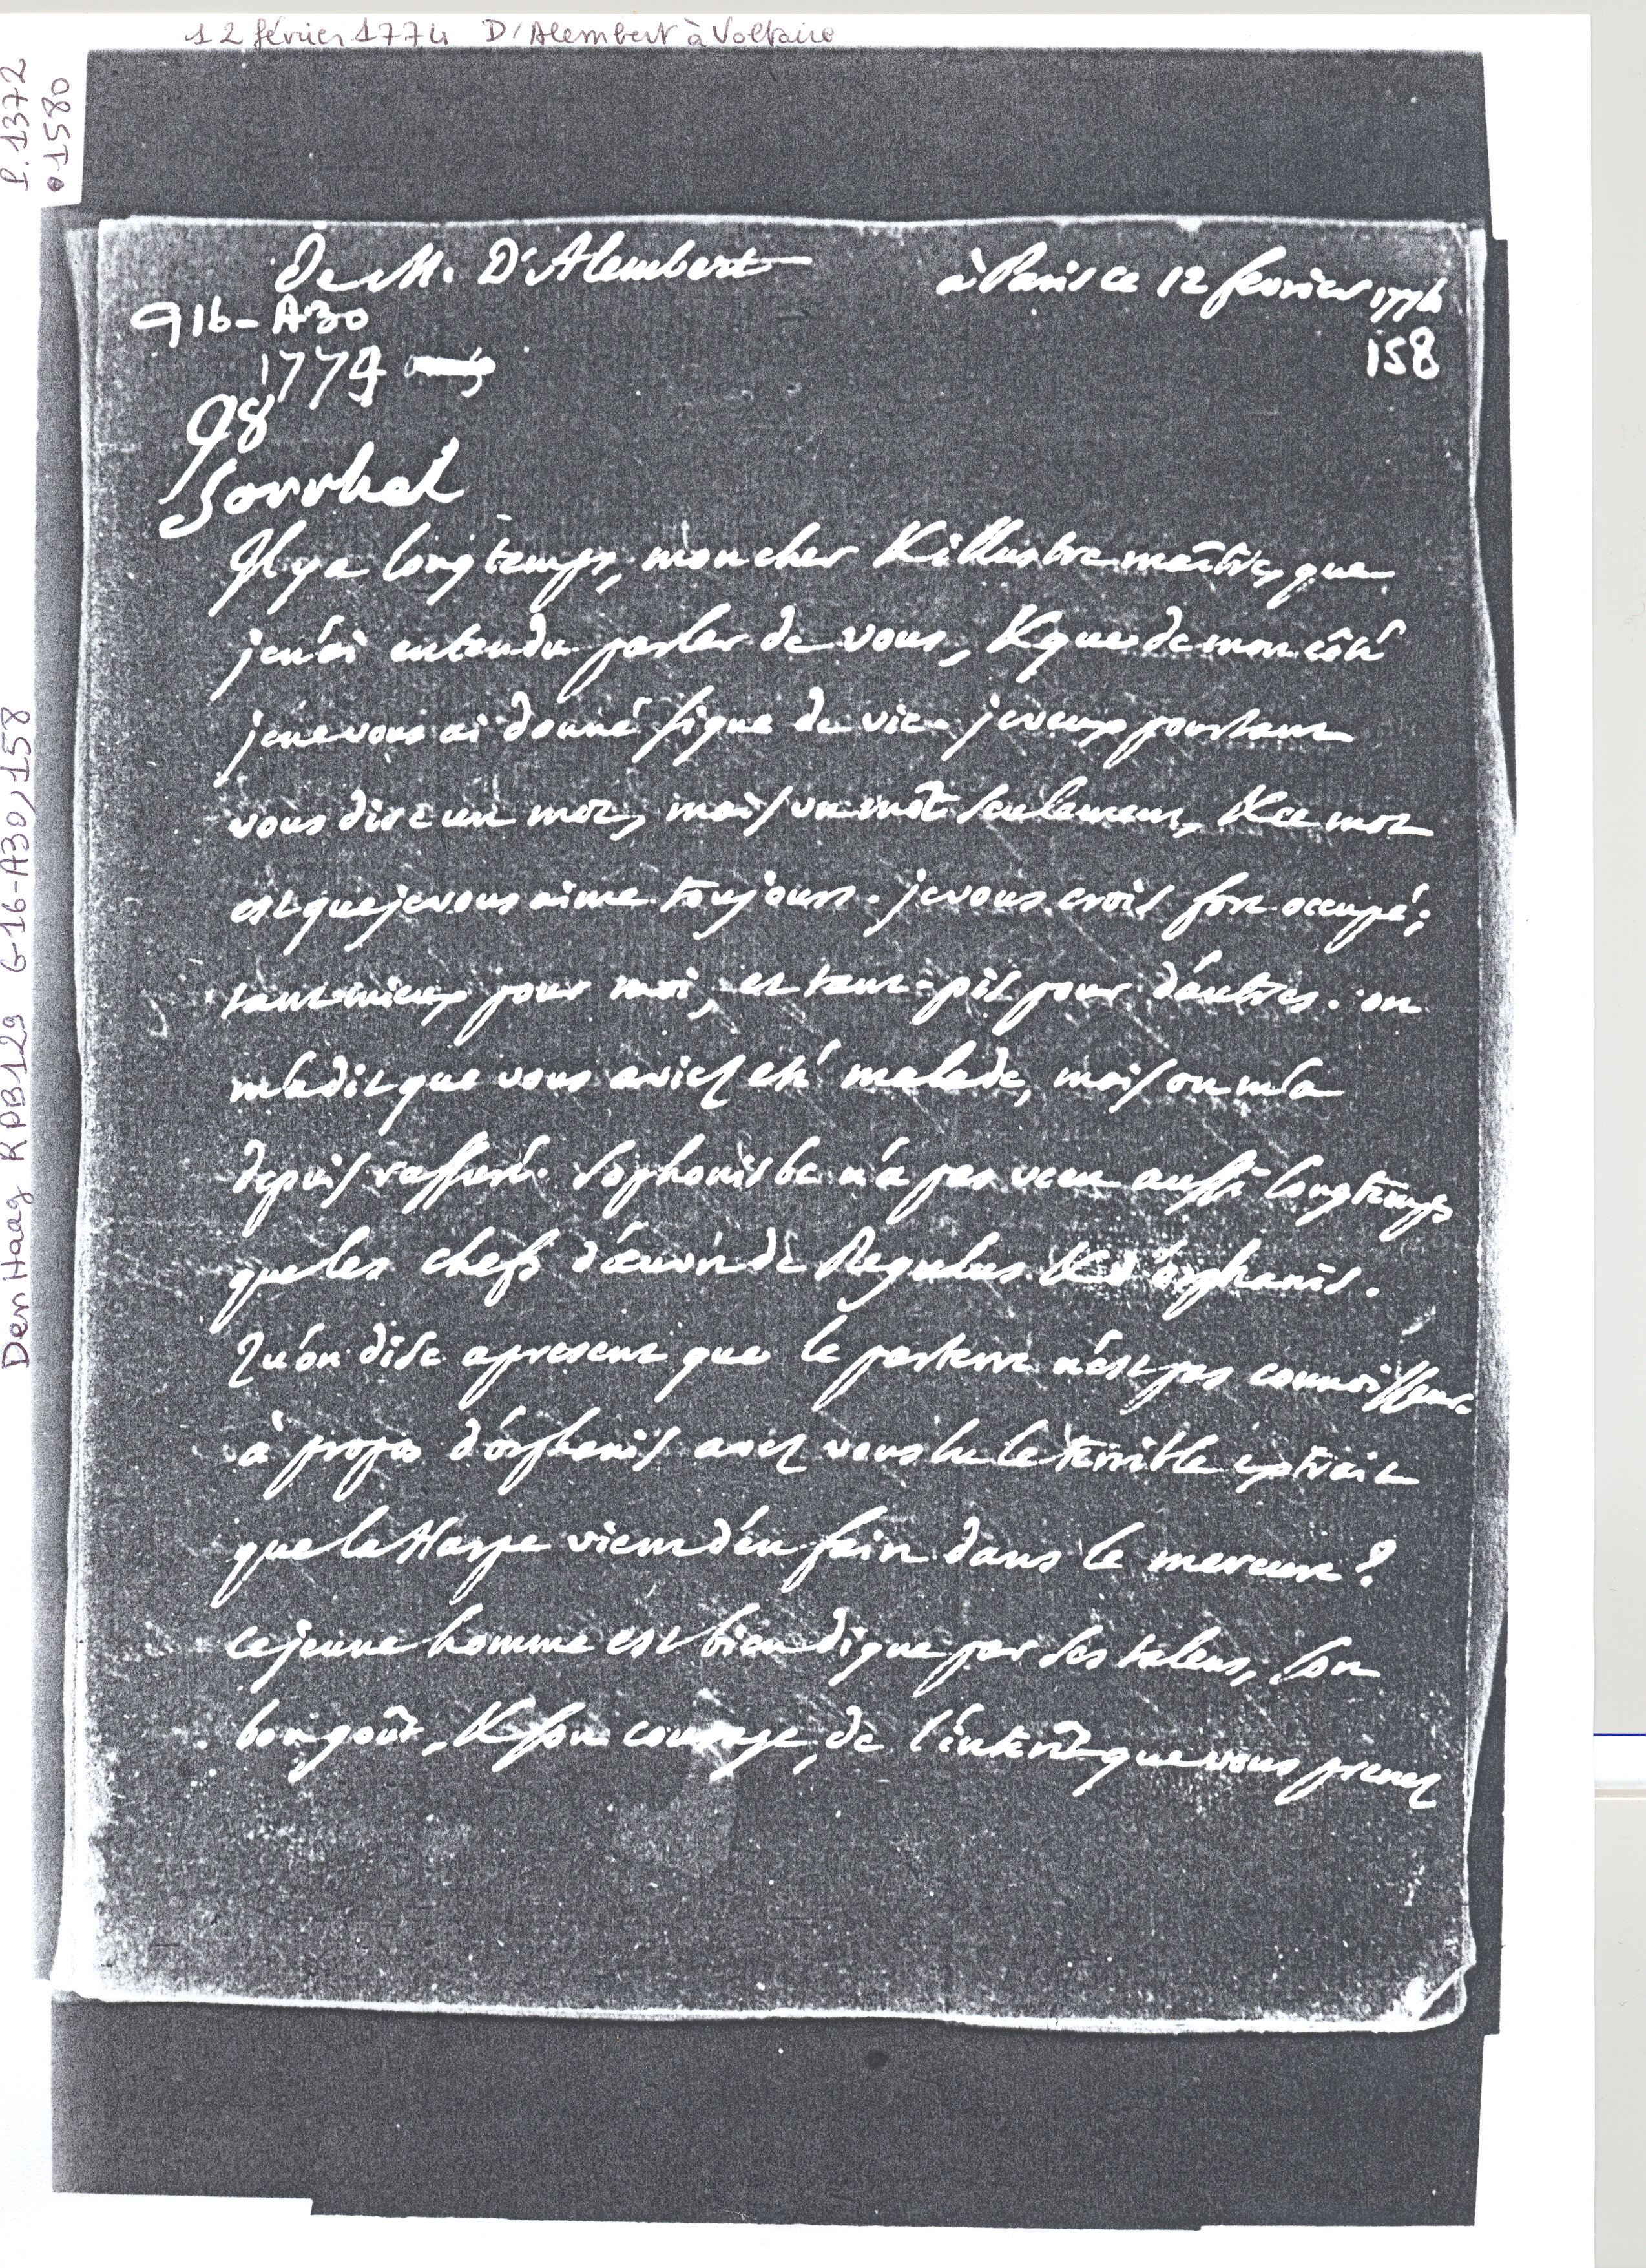 12 février 1774 D'Alembert à Voltaire
P. 1372
01580
Den Haag KPB129 G16-A30,158
De M. D'Alembert
à Paris ce 12 fevrier 1774
G16-A30
158
1774
98
Il y a longtemps, mon cher & illustre maître, que
je n'ai entendu parler de vous, & que de mon côté
je ne vous ai donné signe de vie. je veux pourtant
vous dire un mot, mais un mot seulement, & ce mot
est que je vous aime toujours. je vous crois fort occupé;
tant mieux pour moi, et tant-pis pour d'autres. on
m'a dit que vous aviez été malade, mais on m'a
depuis rassuré. Sophonisbe n'a pas vecu aussi longtemps
que les chefs d'œuvre de Regulus & d'orphanis.
Qu'on dise apresent que le parterre n'est pas connoisseur.
à propos d'orphanis avez vous lu le terrible extrait
que la Harpe vient d'en faire dans le mercure?
ce jeune homme est bien digne par ses talens, son
bon goût, & son courage, de l'intérêt que vous prenez